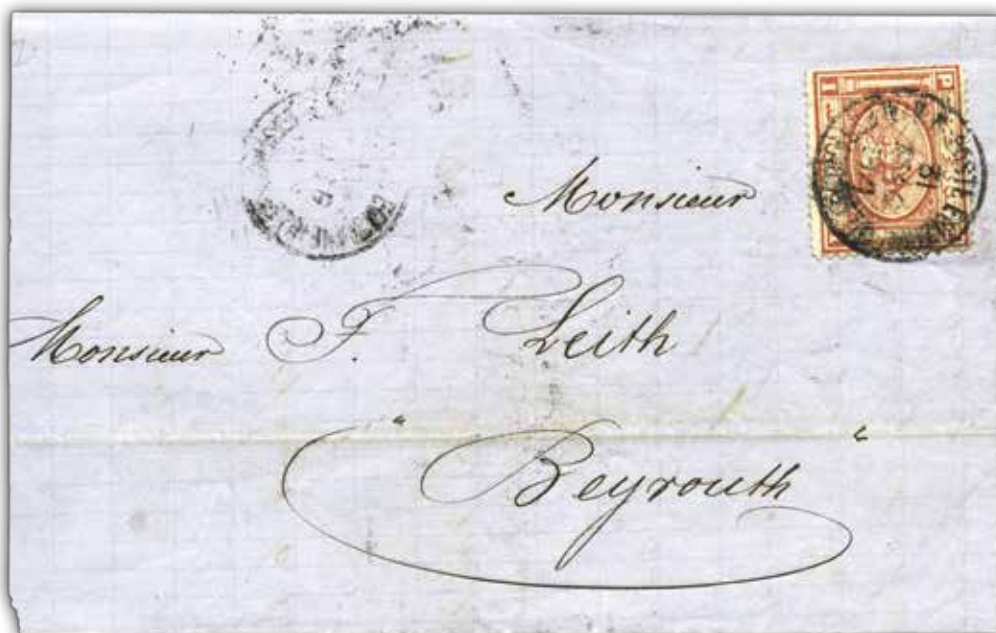 Monsieur
Monsieur F. Leith
" Beyrouth "